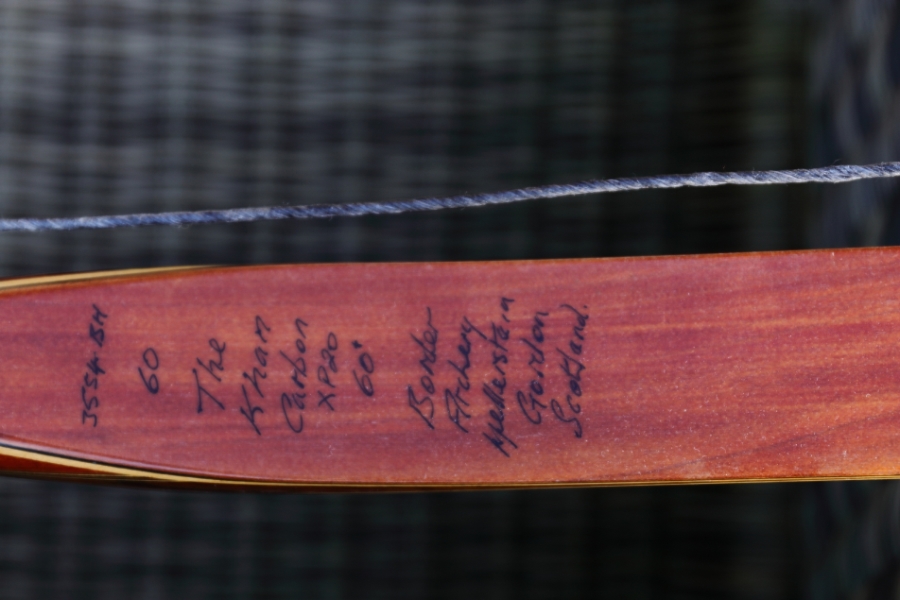 3554-BH
60
The
Khan
Carbon
XP20
60"
Border
Archery
Mellerstain
Gordon
Scotland.